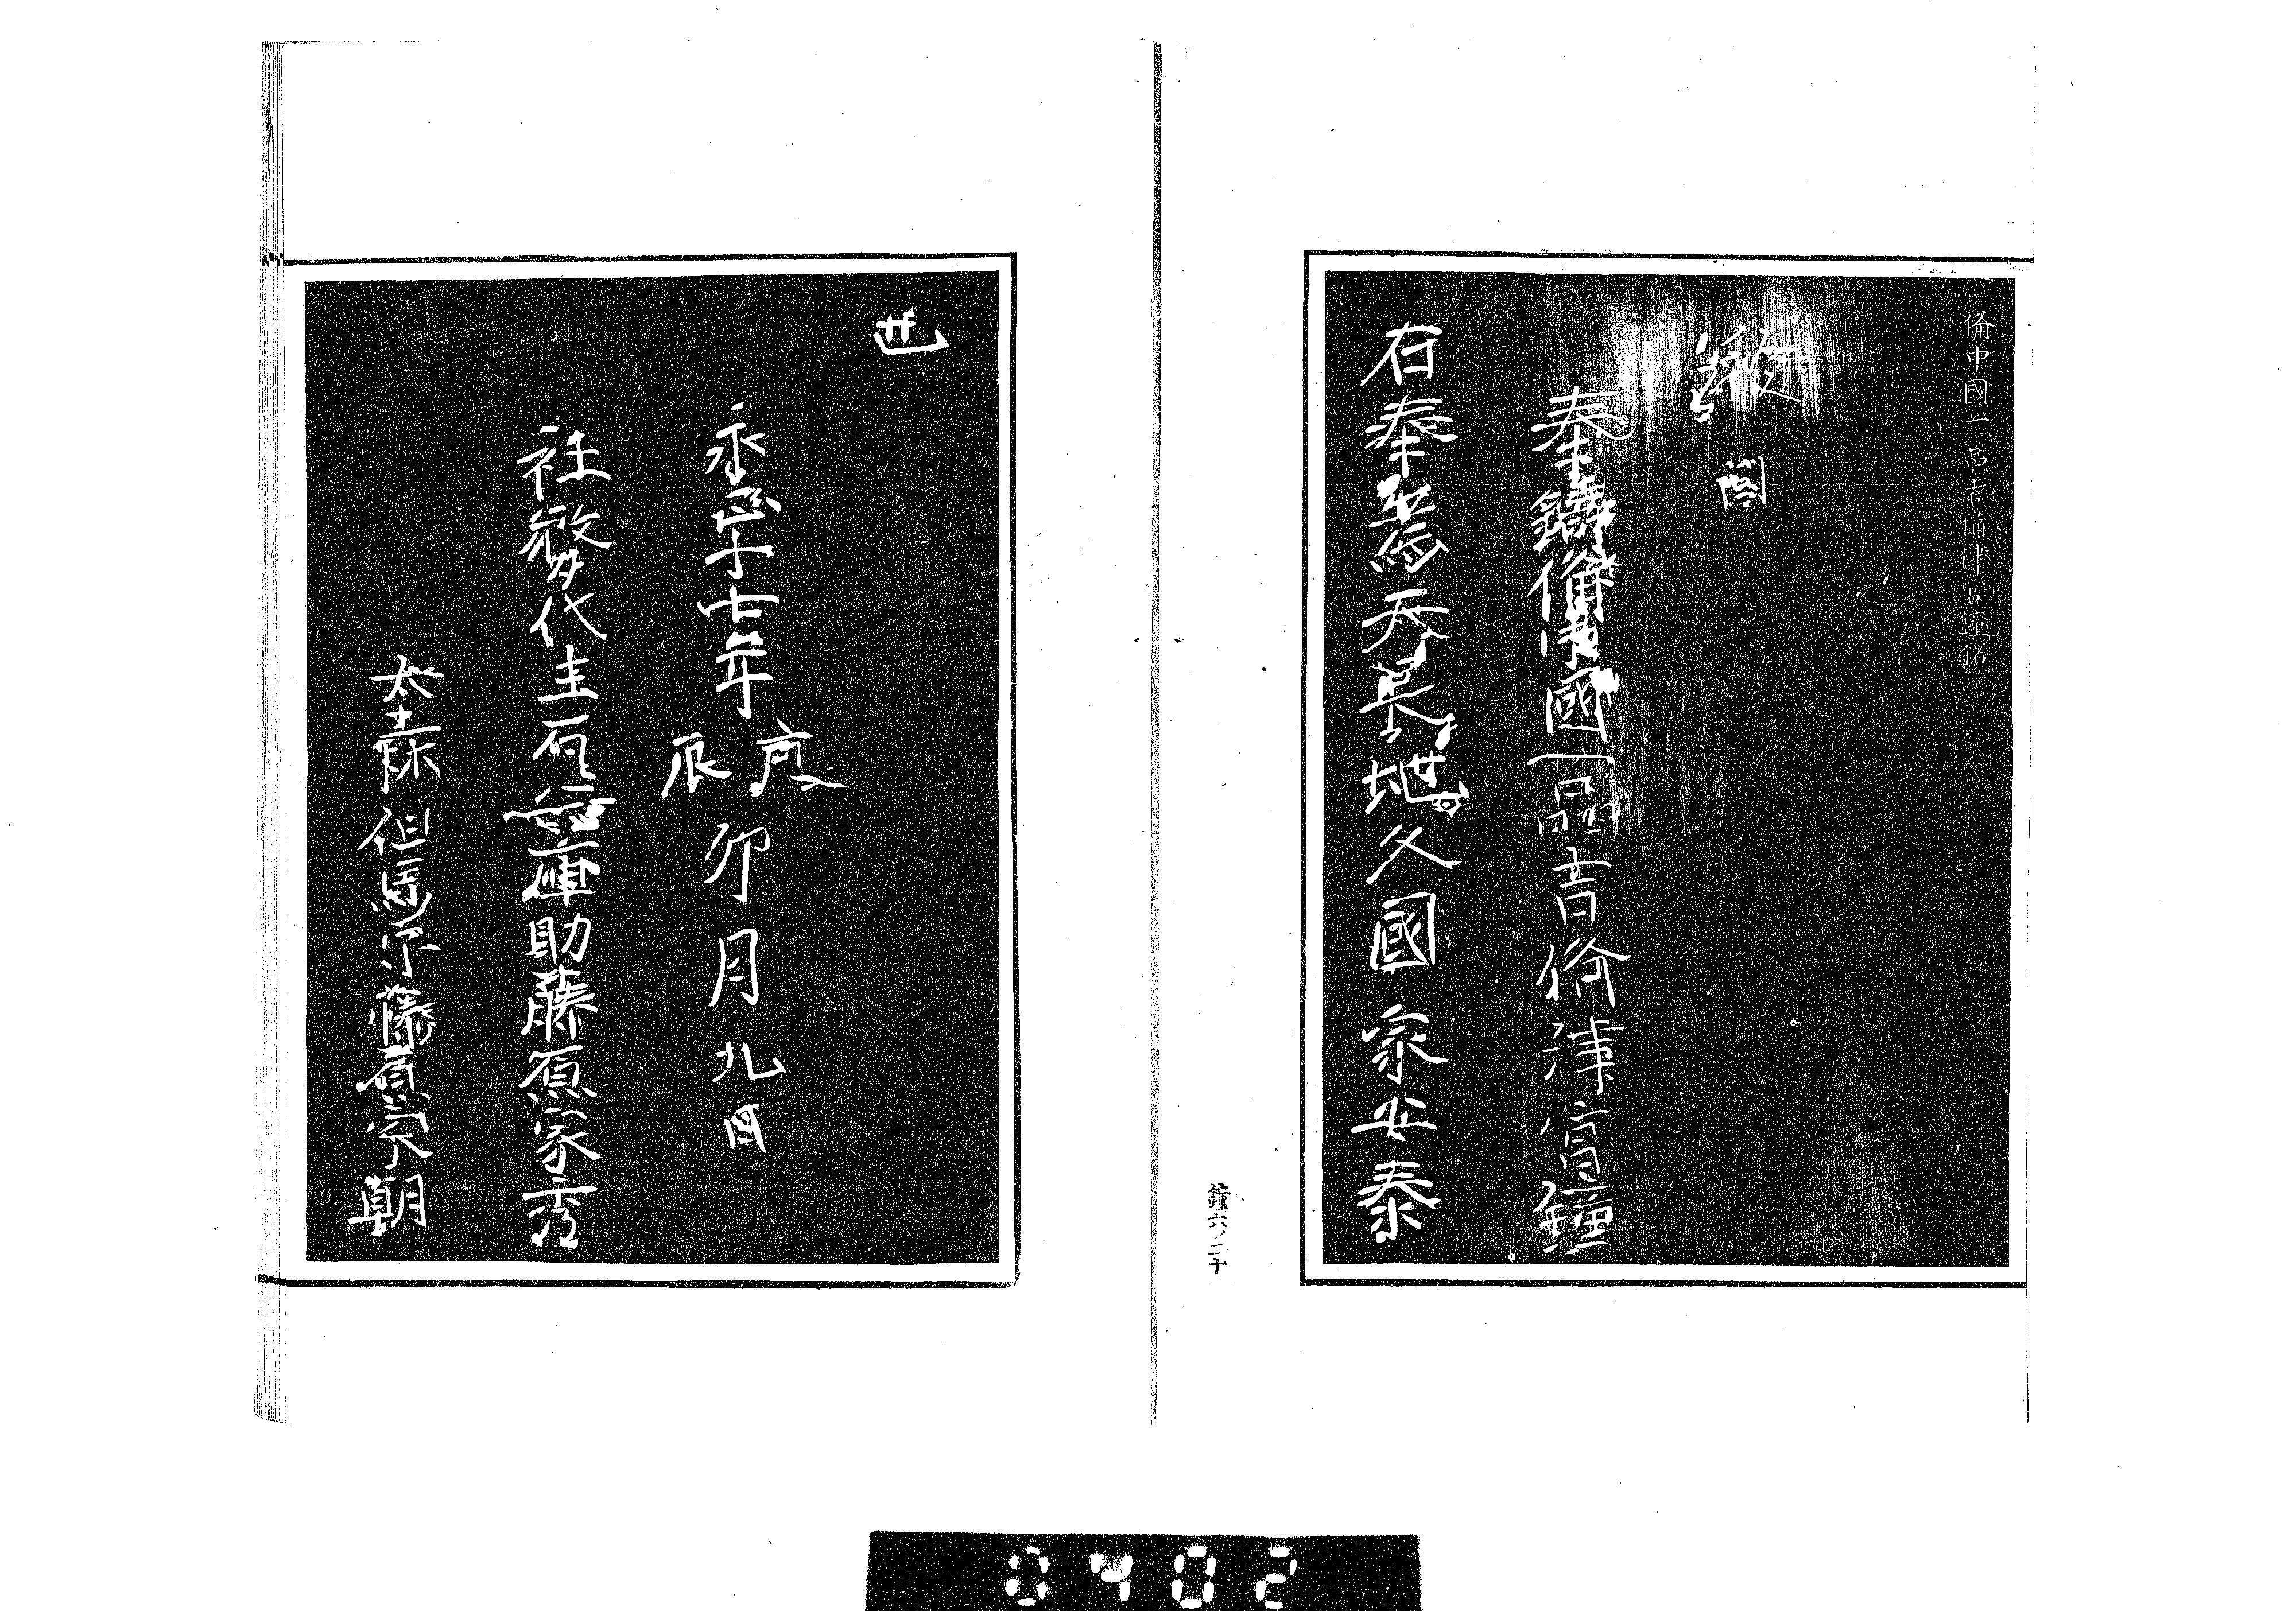 備中國一品吉備津宮鐘銘
鐘 閣
奉鑄備中國一品吉備津宮鐘
右奉為天長地久國家安泰
也
永正十七年庚辰卯月九日
社務代生石兵庫助藤原家秀
大工林但馬守藤原宗朝
鐘六ノ三十
0402